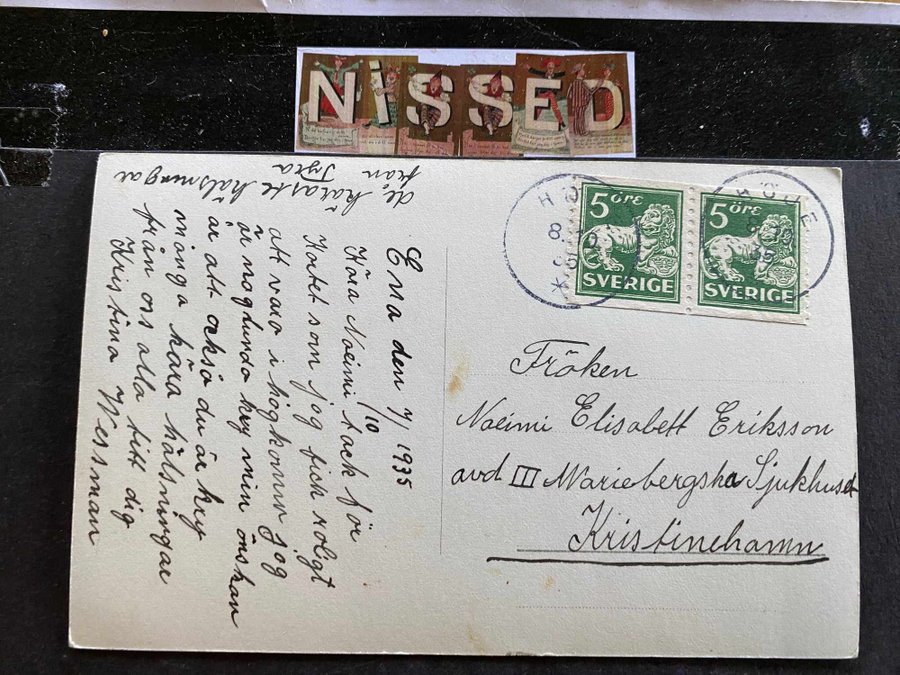 NISSED
5 ÖRE
SVERIGE
5 ÖRE
SVERIGE
Fröken
Noeimi Elisabett Eriksson
avd III Mariebergska Sjukhuset
Kristinehamn
Ena den 7/10 1935
Kära Noeimi tack för
Kortet som jog fick roligt
att vara i hogkomn jog
är noglunda kry min önskan
är att också du är kry
många kära hälsningar
från oss alla titt dig
Kristina Wessman
de käraste hälsningar
från Tyra